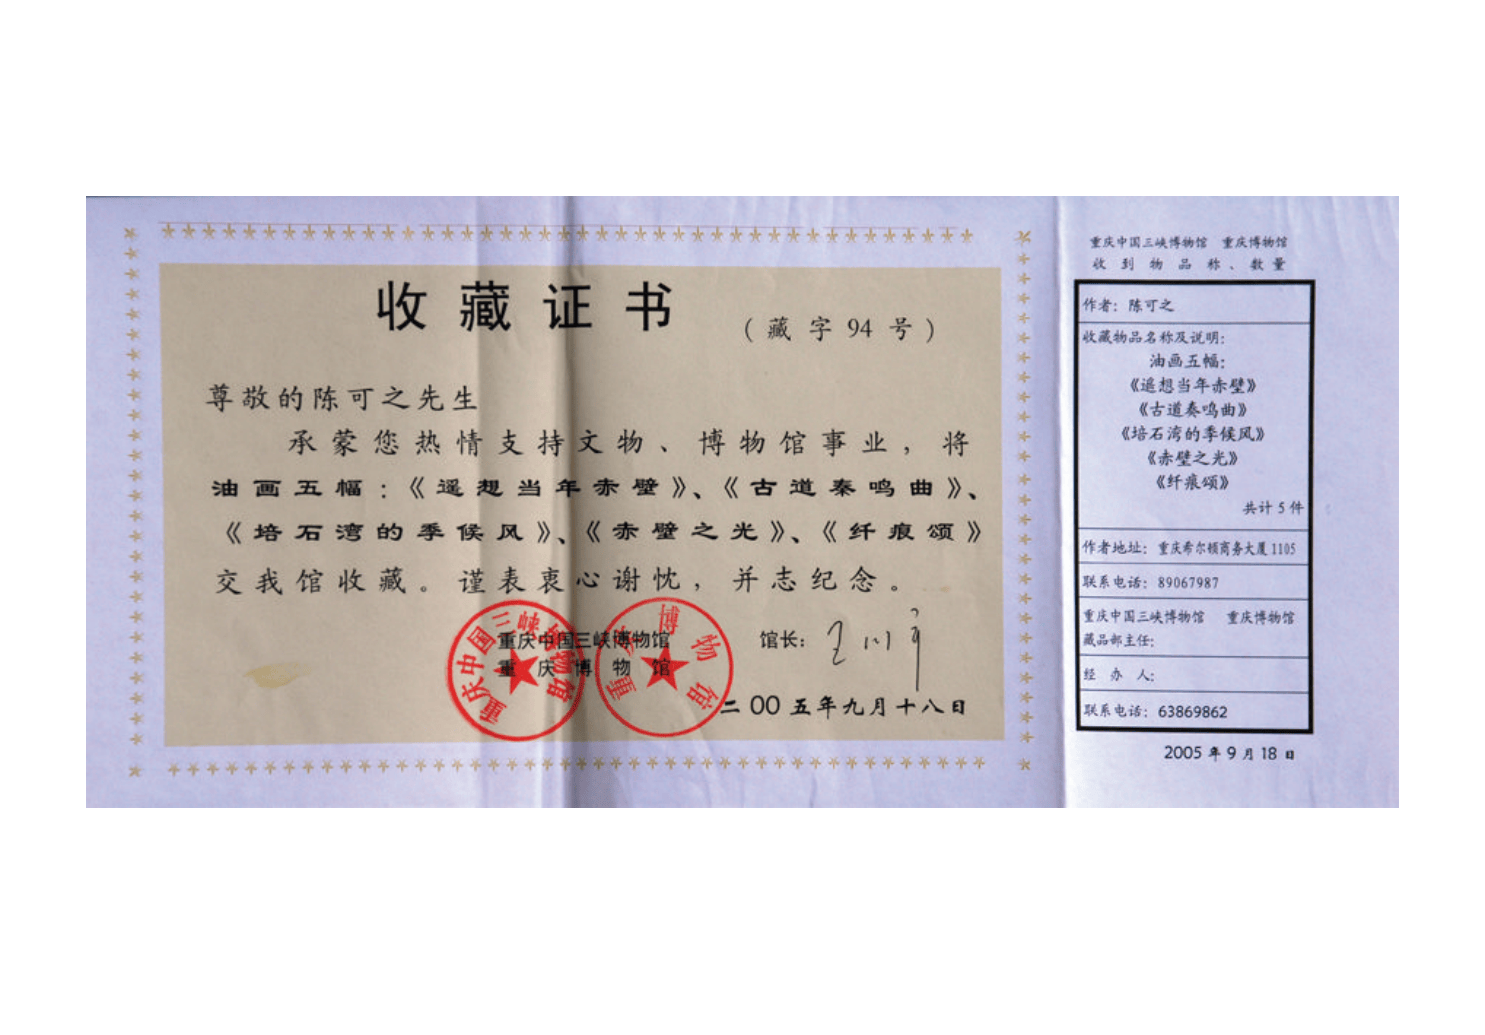 收藏证书
（藏字94号）
尊敬的陈可之先生
承蒙您热情支持文物、博物馆事业，将
油画五幅：《遥想当年赤壁》、《古道奏鸣曲》、
《培石湾的季候风》、《赤壁之光》、《纤痕颂》
交我馆收藏。谨表衷心谢忱，并志纪念。
重庆中国三峡博物馆
重庆博物馆
重庆中国三峡博物馆
重庆博物馆
馆长：
二00五年九月十八日
重庆中国三峡博物馆 重庆博物馆
收到物品称、数量
作者：陈可之
收藏物品名称及说明：
油画五幅：
《遥想当年赤壁》
《古道奏鸣曲》
《培石湾的季候风》
《赤壁之光》
《纤痕颂》
共计5件
作者地址：重庆希尔顿商务大厦1105
联系电话：89067987
重庆中国三峡博物馆 重庆博物馆
藏品部主任：
经办人：
联系电话：63869862
2005年9月18日